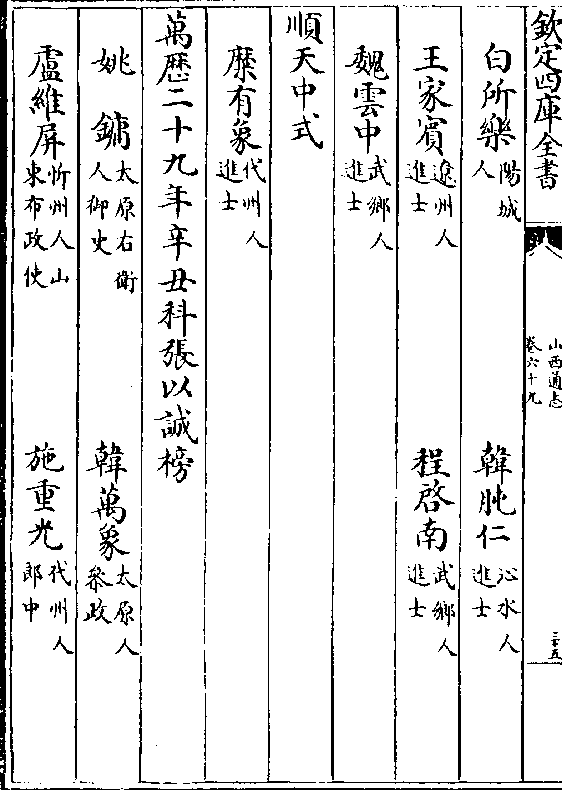 欽定四庫全書
山西通志
卷六十九
白所樂 陽城人 韓肫仁 沁水人進士
王家賓 遼州人進士 程啓南 武鄉人進士
魏雲中 武鄉人進士
順天中式
糜有象 代州人進士
萬歷二十九年辛丑科張以誠榜
姚鏞 太原右衛人御史 韓萬象 太原人叅政
盧維屏 忻州人山東布政使 施重光 代州人郎中